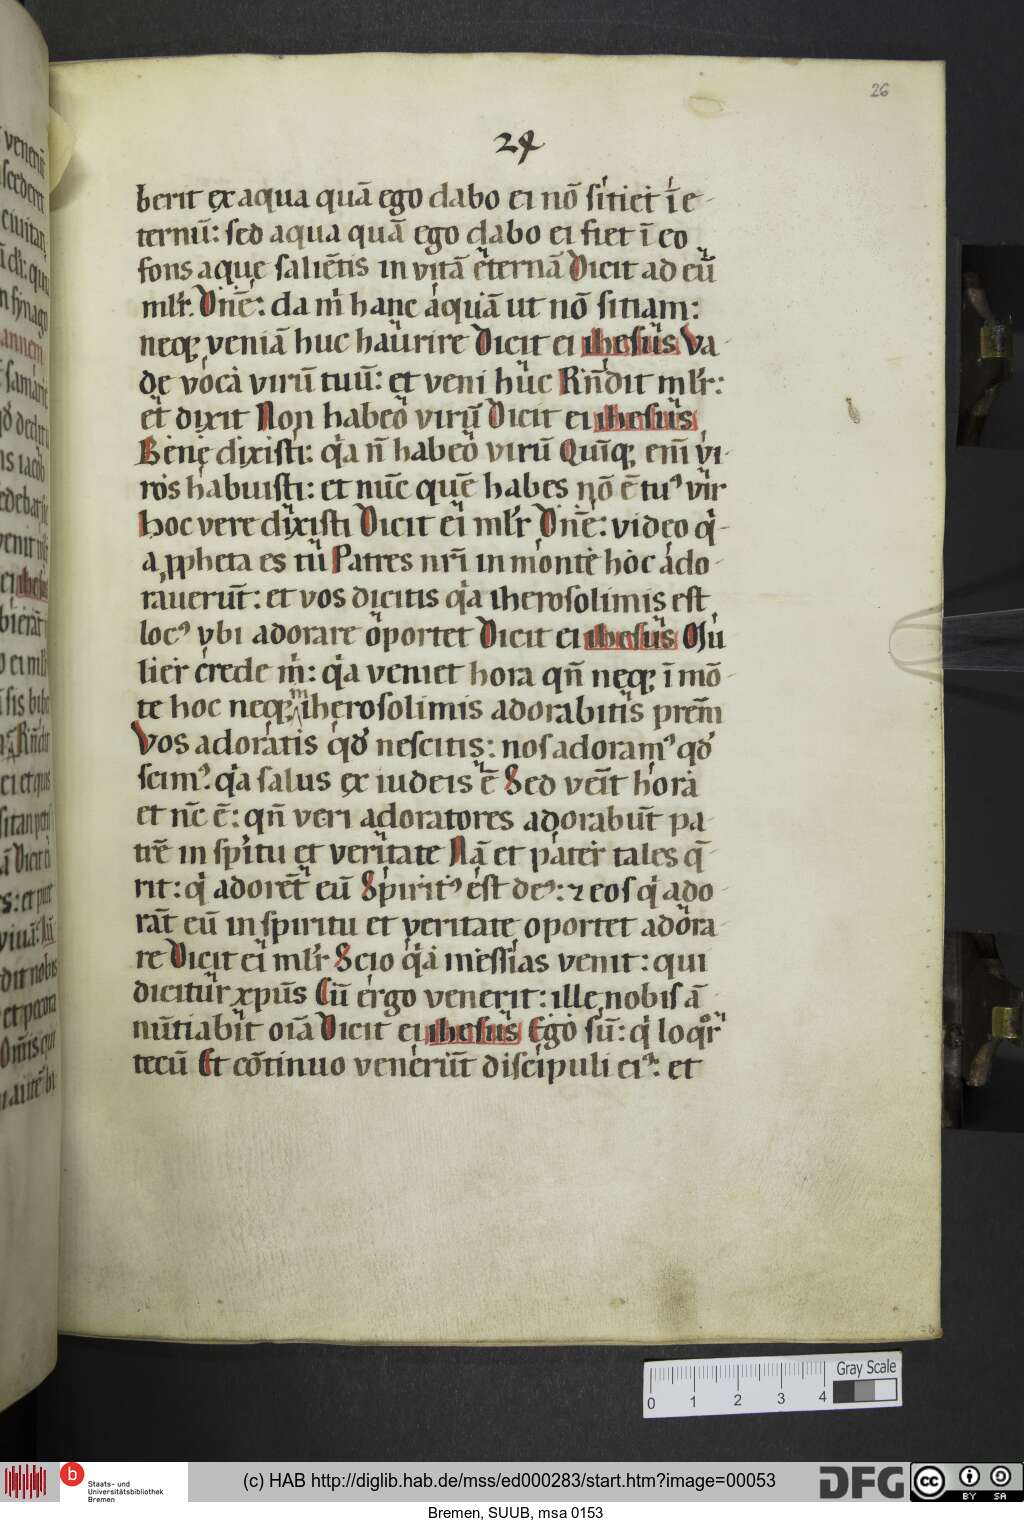 26
24
berit ex aqua quā ego dabo ei nō sitiet ī e-
ternū: sed aqua quā ego dabo ei fiet ī eo
fons aque saliētis in vitā eternā Dicit ad eū
ml'r. Dn̄e: da m̍ hanc aquā ut nō sitiam:
neq; veniā huc haurire Dicit ei ihesus Va-
de voca virū tuū: et veni huc Rn̄dit ml'r:
et dixit Non habeo virū Dicit ei ihesus
Bene dixisti: q̍a n̄ habeo virū Quīq; em̄ vi-
ros habuisti: et nūc quē habes nō ē tuꝰ vir
hoc vere dixisti Dicit ei ml'r Dn̄e: video q̍-
a ꝓpheta es tu Patres nr̄i in monte hoc ado-
rauerūt: et vos dicitis q̍a iherosolimis est
locꝰ vbi adorare oportet Dicit ei ihesus Mu-
lier crede m̍: q̍a veniet hora qn̄ neq; ī mō-
te hoc neq; in iherosolimis adorabitis prem̄
Vos adoratis q̍d nescitis: nos adoramꝰ qd̍
scimꝰ. q̍a salus ex iudeis ē Sed veīt hora
et nc̄ ē: qn̄ veri adoratores adorabūt pa-
trē in sp̍itu et veritate Nā et pater tales q̄-
rit: q̍ adorēt eū Spiritꝰ est deꝰ: ⁊ eos q̍ ado-
rāt eū in spiritu et veritate oportet adora-
re Dicit ei ml'r Scio q̍a messias venit: qui
dicitur xpūs Cū ergo venerit: ille nobis ā-
nūtiabit oīa Dicit ei ihesus Ego sū: q̍ loqͦr
tecū Et cōtinuo venerūt discipuli eiꝰ: et
Gray Scale
0 1 2 3 4
b Staats- und
Universitätsbibliothek
Bremen
(c) HAB http://diglib.hab.de/mss/ed000283/start.htm?image=00053
DFG
cc BY SA
Bremen, SUUB, msa 0153